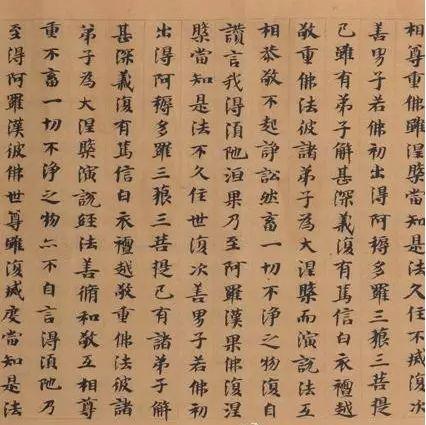 相尊重佛雖涅槃當知是法久住不滅復次
善男子若佛初出得阿耨多羅三藐三菩提
已雖有弟子解甚深義復有篤信白衣檀越
敬重佛法彼諸弟子為大涅槃而演說法互
相恭敬不起諍訟然畜一切不淨之物復自
讃言我得湏陁洹果乃至阿羅漢果佛復涅
槃當知是法不久住世復次善男子若佛初
出得阿耨多羅三藐三菩提已有諸弟子解
甚深義復有篤信白衣檀越敬重佛法彼諸
弟子為大涅槃演說經法善脩和敬互相尊
重不畜一切不淨之物亦不自言得湏陁乃
至得阿羅漢彼佛世尊雖復滅度當知是法